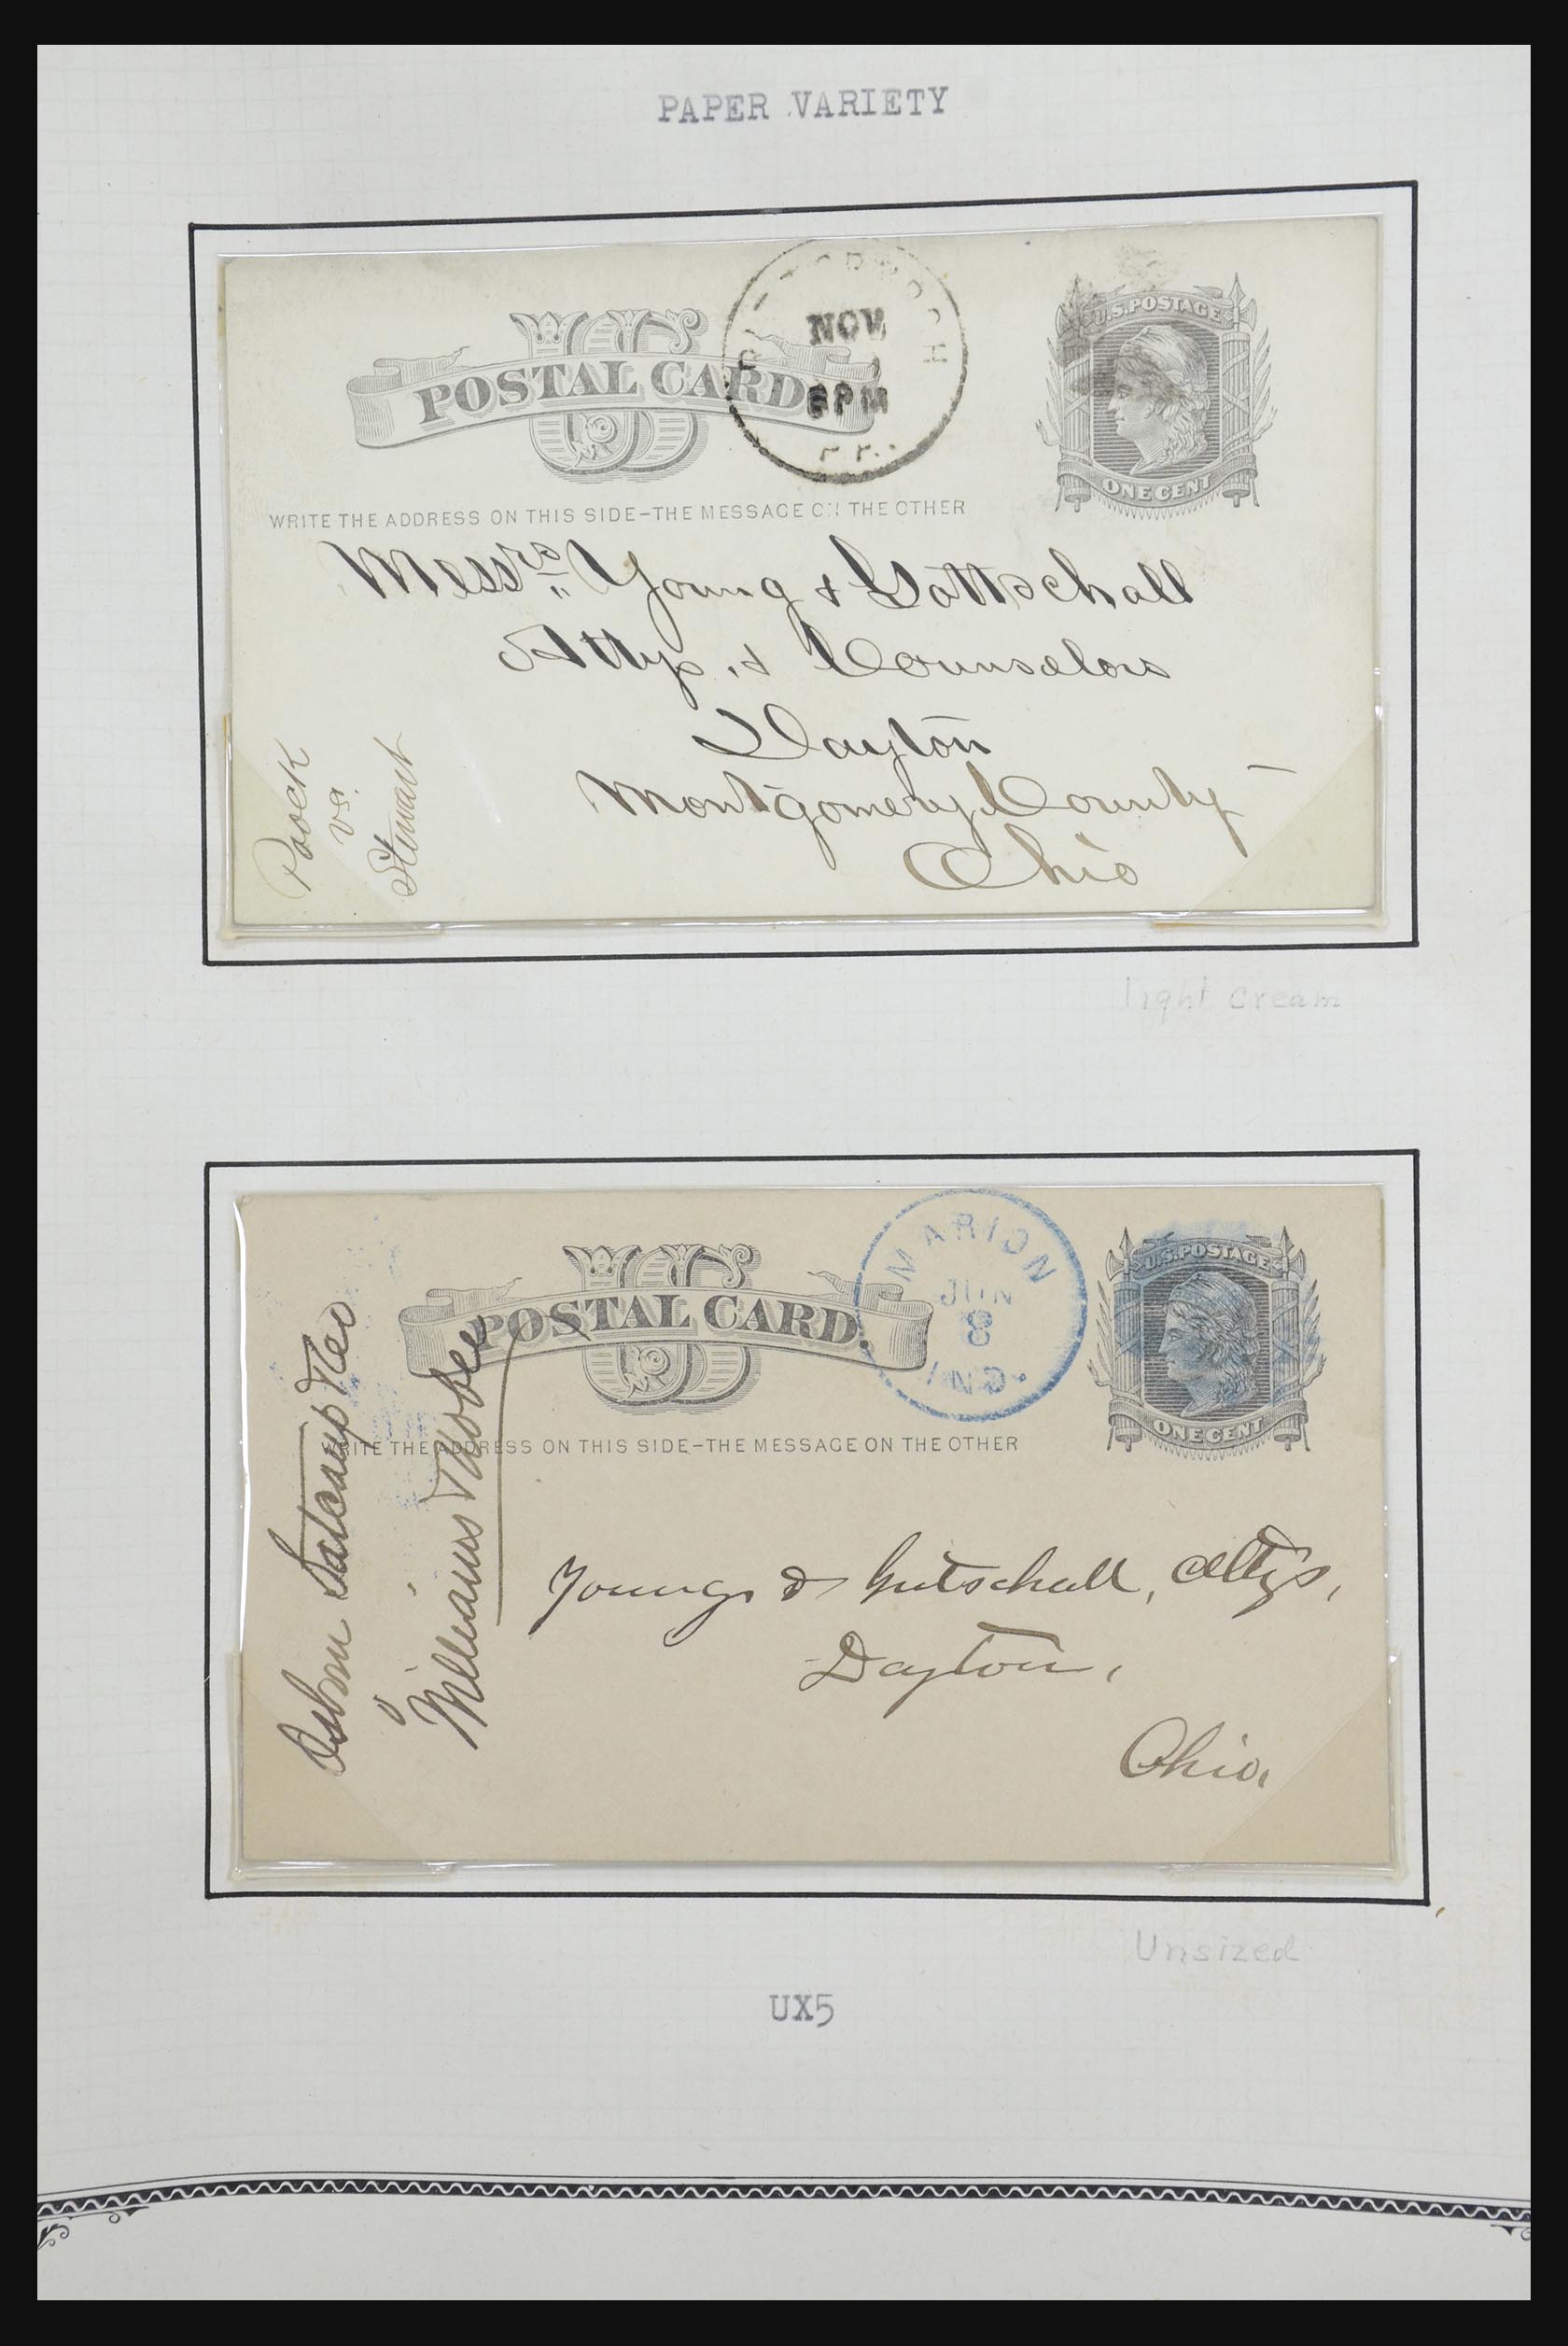 PAPER VARIETY
US
POSTAL CARD
NOV.
6PM
U.S.POSTAGE
ONE CENT
WRITE THE ADDRESS ON THIS SIDE–THE MESSAGE ON THE OTHER
Messrs Young & Gottschall
Attys. & Counselors
Dayton
Montgomery County
Ohio
vs.
Stewart
light cream
US
POSTAL CARD.
MARION
JUN
8
IND.
U.S.POSTAGE
ONE CENT
WRITE THE ADDRESS ON THIS SIDE–THE MESSAGE ON THE OTHER
Young & Gutschall, Attys,
Dayton,
Ohio,
Osborn
Williams
Unsized
UX5